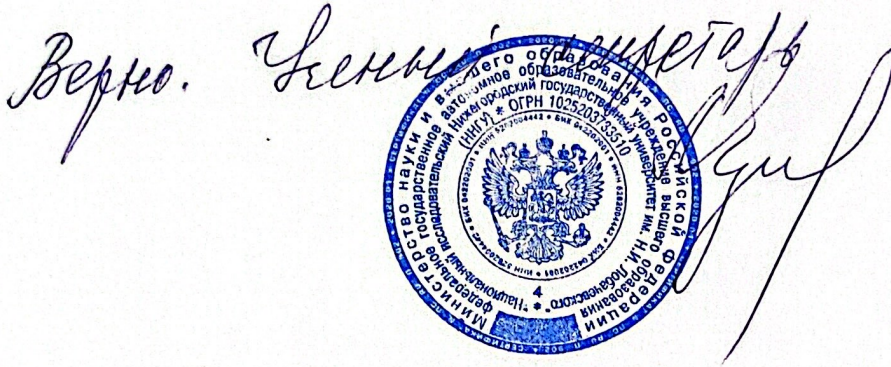 Верно. Ученый секретарь
Министерство науки и высшего образования Российской Федерации
федеральное государственное автономное образовательное учреждение высшего образования
"Национальный исследовательский Нижегородский государственный университет им. Н.И. Лобачевского"
(ННГУ) * ОГРН 1025203733510
4